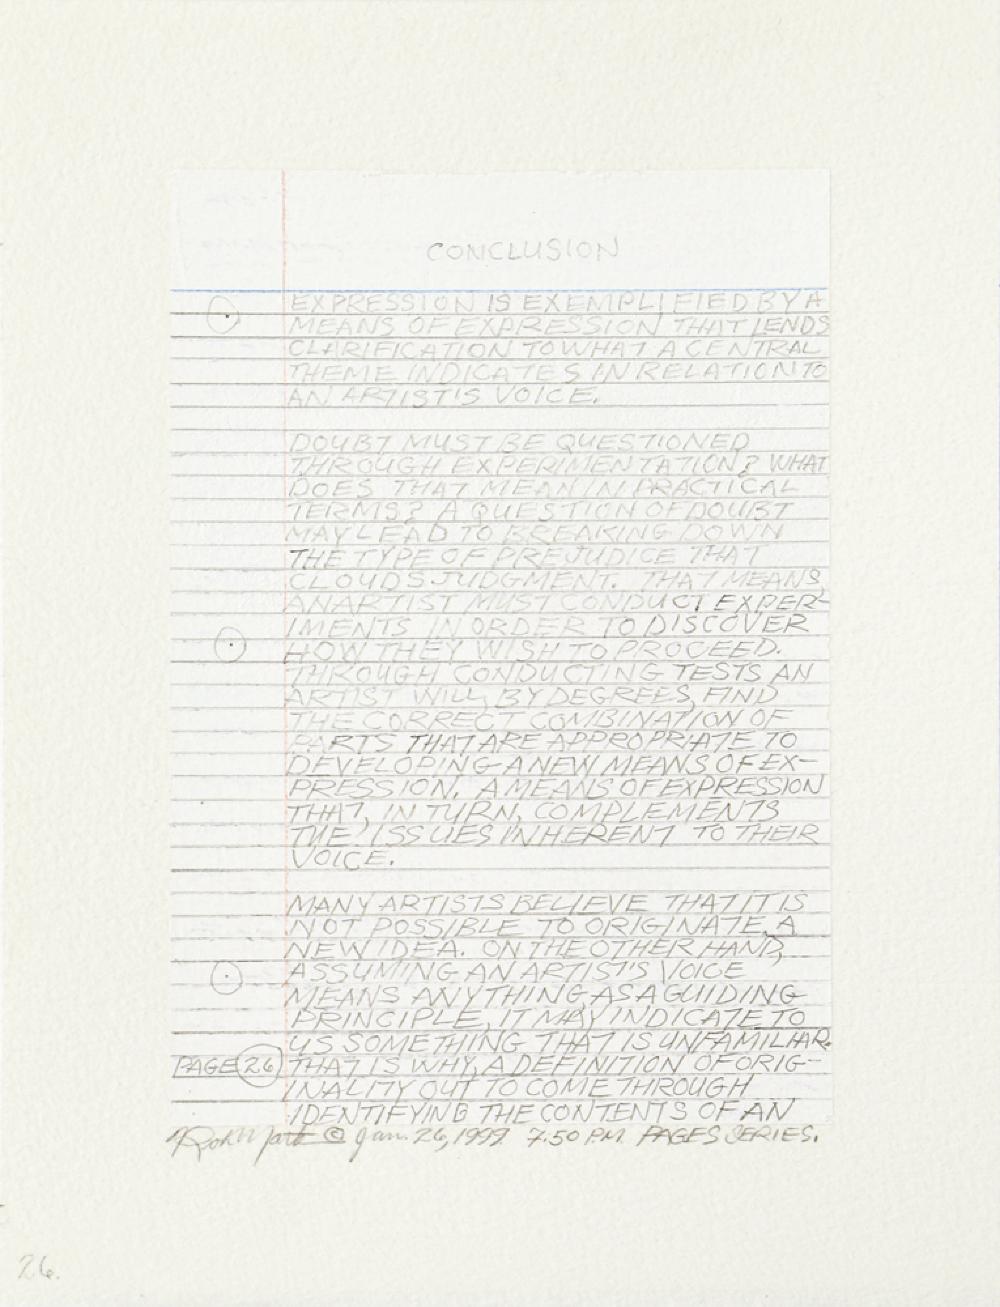 CONCLUSION
EXPRESSION IS EXEMPLIFIED BY A
MEANS OF EXPRESSION THAT LENDS
CLARIFICATION TO WHAT A CENTRAL
THEME INDICATES IN RELATION TO
AN ARTIST'S VOICE.
DOUBT MUST BE QUESTIONED
THROUGH EXPERIMENTATION? WHAT
DOES THAT MEAN IN PRACTICAL
TERMS? A QUESTION OF DOUBT
MAY LEAD TO BREAKING DOWN
THE TYPE OF PREJUDICE THAT
CLOUDS JUDGMENT. THAT MEANS,
AN ARTIST MUST CONDUCT EXPER-
IMENTS IN ORDER TO DISCOVER
HOW THEY WISH TO PROCEED.
THROUGH CONDUCTING TESTS AN
ARTIST WILL, BY DEGREES, FIND
THE CORRECT COMBINATION OF
PARTS THAT ARE APPROPRIATE TO
DEVELOPING A NEW MEANS OF EX-
PRESSION. A MEANS OF EXPRESSION
THAT, IN TURN, COMPLEMENTS
THE ISSUES INHERENT TO THEIR
VOICE.
MANY ARTISTS BELIEVE THAT IT IS
NOT POSSIBLE TO ORIGINATE A
NEW IDEA. ON THE OTHER HAND,
ASSUMING AN ARTIST'S VOICE
MEANS ANYTHING AS A GUIDING
PRINCIPLE, IT MAY INDICATE TO
US SOMETHING THAT IS UNFAMILIAR.
PAGE 26 THAT IS WHY, A DEFINITION OF ORIG-
INALITY OUT TO COME THROUGH
IDENTIFYING THE CONTENTS OF AN
© Jan. 26, 1999. 7:50 PM. PAGES SERIES.
26.